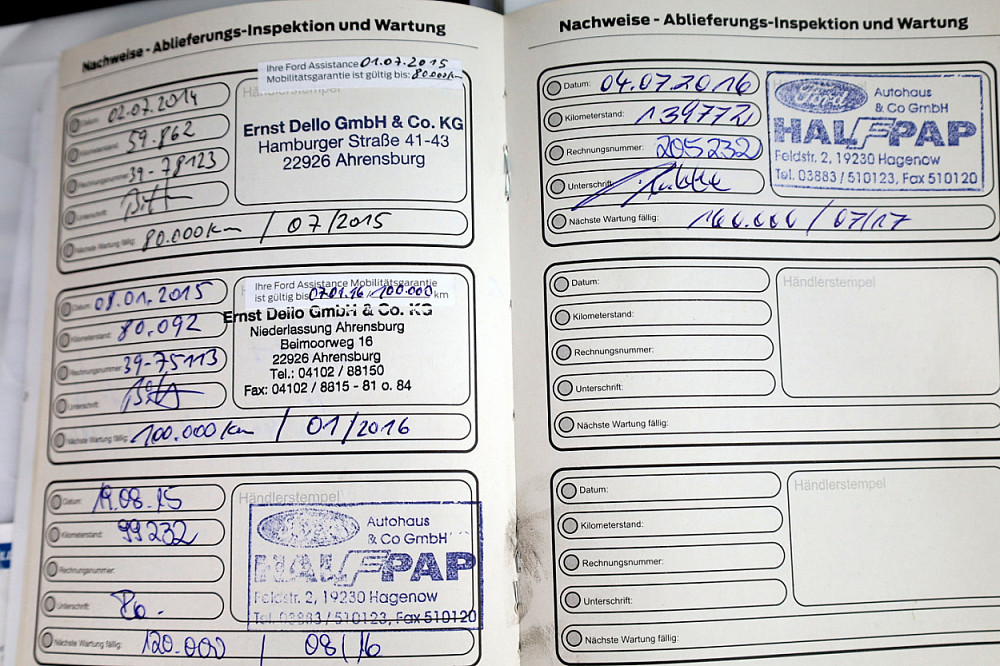 Nachweise - Ablieferungs-Inspektion und Wartung
Ihre Ford Assistance 01.07.2015
Mobilitätsgarantie ist gültig bis: 80.000km
Händlerstempel
Datum: 02.07.2014
Kilometerstand: 59.862
Rechnungsnummer: 39-78123
Unterschrift:
Ernst Dello GmbH & Co. KG
Hamburger Straße 41-43
22926 Ahrensburg
Nächste Wartung fällig: 80.000km / 07/2015
Ihre Ford Assistance Mobilitätsgarantie
ist gültig bis 07.01.16 / 100.000 km
Datum: 08.01.2015
Kilometerstand: 80.092
Rechnungsnummer: 39-75113
Unterschrift:
Ernst Dello GmbH & Co. KG
Niederlassung Ahrensburg
Beimoorweg 16
22926 Ahrensburg
Tel.: 04102 / 88150
Fax: 04102 / 8815 - 81 o. 84
Nächste Wartung fällig: 100.000km / 01/2016
Datum: 19.08.15
Kilometerstand: 99232
Rechnungsnummer:
Unterschrift:
Händlerstempel
Ford
Autohaus
& Co GmbH
HALFPAP
Feldstr. 2, 19230 Hagenow
Tel. 03883 / 510123, Fax 510120
Nächste Wartung fällig: 120.000 / 08/16
Nachweise - Ablieferungs-Inspektion und Wartung
Datum: 04.07.2016
Kilometerstand: 139772
Rechnungsnummer: 205232
Unterschrift:
Ford
Autohaus
& Co GmbH
HALFPAP
Feldstr. 2, 19230 Hagenow
Tel. 03883 / 510123, Fax 510120
Nächste Wartung fällig: 160.000 / 07/17
Datum:
Kilometerstand:
Rechnungsnummer:
Unterschrift:
Händlerstempel
Nächste Wartung fällig:
Datum:
Kilometerstand:
Rechnungsnummer:
Unterschrift:
Händlerstempel
Nächste Wartung fällig: